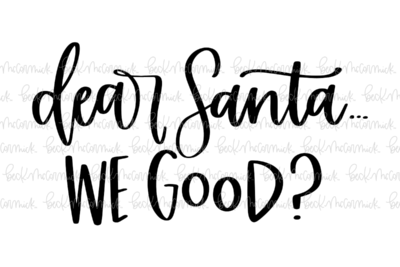 dear Santa...
WE GOOD?